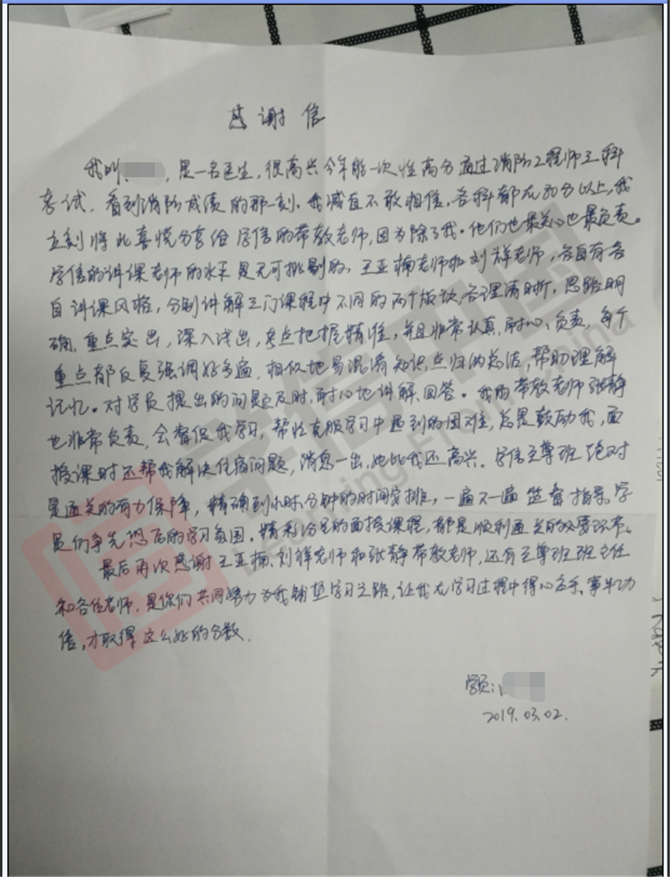 感谢信
我叫 ，是一名医生，很高兴今年能一次性高分通过消防工程师三科
考试，看到消防成绩的那一刻，我简直不敢相信，各科都在80分以上，我
立刻将此喜悦分享给学信的带教老师，因为除了我。他们也最关心也最负责。
学信的讲课老师的水平是无可挑剔的、王亚楠老师和刘祥老师，各自有各
自讲课风格，分别讲解三门课程中不同的两个版块，条理清晰，思路明
确、重点突出，深入浅出，考点把握精准，并且非常认真、耐心、负责，每个
重点都反复强调好多遍，相似地易混淆知识点归纳总结，帮助理解
记忆。对学员提出的问题及时、耐心地讲解、回答。我的带教老师张静
也非常负责，会督促我学习，帮忙克服学习中遇到的困难，总是鼓励我，面
授课时还帮我解决住宿问题，消息一出，她比我还高兴。学信至尊班绝对
是通关的有力保障，精确到小时、分钟的时间安排，一遍又一遍监督指导，学
员们争先恐后的学习氛围，精彩纷呈的面授课程，都是顺利通关的必要改革。
最后再次感谢王亚楠、刘祥老师和张静带教老师，还有至尊班班主任
和各位老师，是你们共同努力为我铺垫学习之路，让我在学习过程中得心应手、事半功
倍，才取得这么好的分数.
学员：
2019.03.02.
学信中国
Learning From China